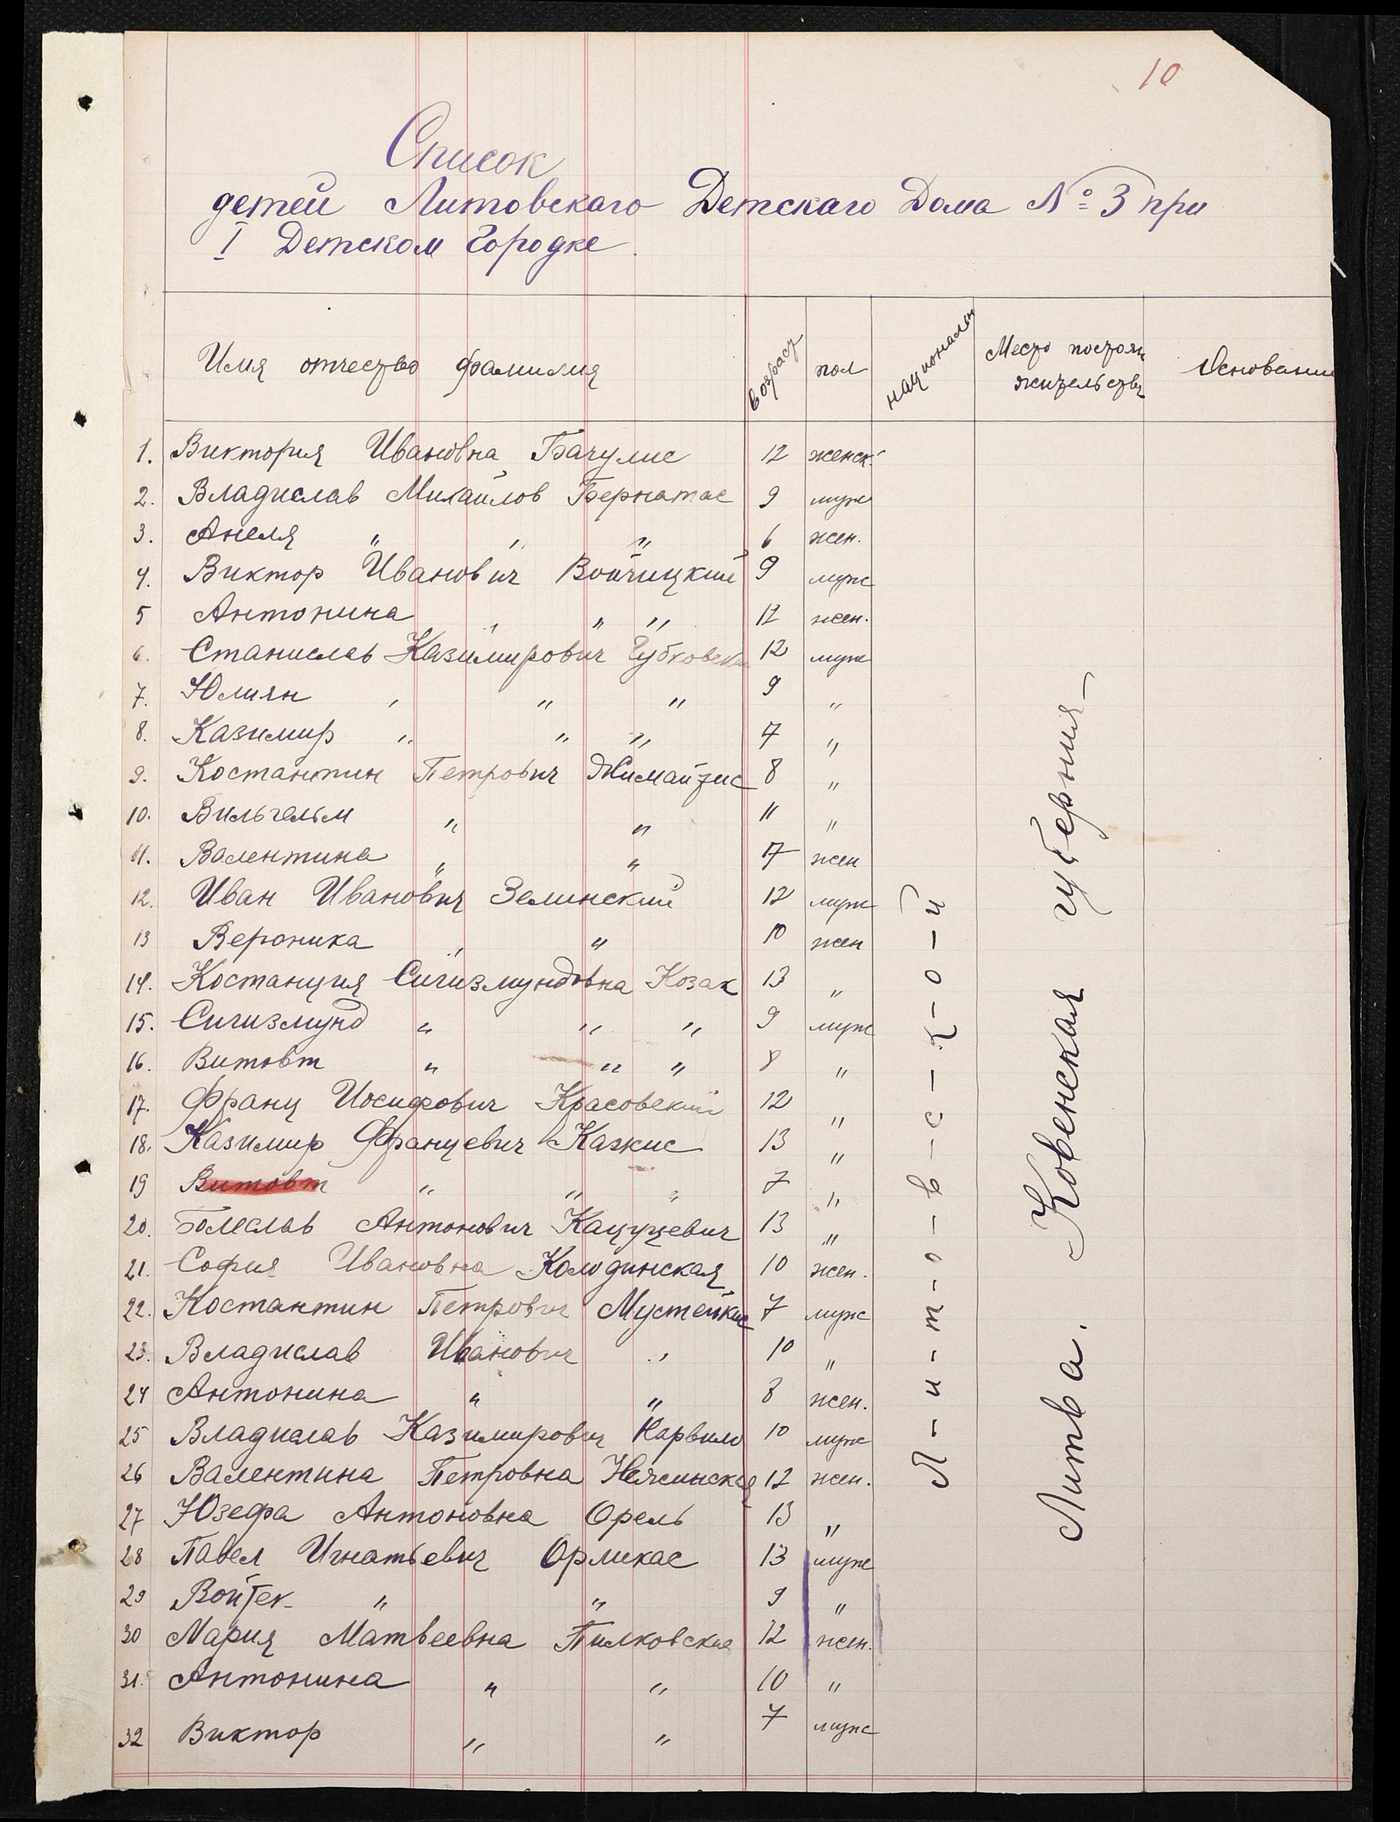 10
Список
детей Литовскаго Детскаго Дома № 3 при
I Детском Городке.
Имя отчество фамилия возраст пол национальн Место постоян жительств Основание
1. Виктория Ивановна Бачулис 12 женск.
2. Владислав Михайлов Бернатас 9 муж
3. Анеля " " " 6 жен.
4. Виктор Иванович Войчицкий 9 муж
5 Антонина " " " 12 жен.
6. Станислав Казимирович Губковски 12 муж
7. Юлиян " " " 9 "
8. Казимир " " " 7 "
9. Костантин Петрович Жимайзис 8 "
10. Вильгельм " " 11 "
11. Валентина " " 7 жен
12. Иван Иванович Зелинский 12 муж
13 Вероника " " 10 жен
14. Костанция Сигизмундовна Козак 13 "
15. Сигизмунд " " " 9 муж
16. Витовт " " " 8 "
17. Франц Иосифович Красовский 12 "
18. Казимир Францевич Кажис 13 "
19 Витовт " " " 7 "
20. Болеслав Антонович Кацуцевич 13 "
21. София Ивановна Колодинская 10 жен.
22. Костантин Петрович Мустейкис 7 муж
23. Владислав Иванович " 10 "
24 Антонина " " 8 жен.
25 Владислав Казимирович Нарвило 10 муж
26 Валентина Петровна 12 жен.
27 Юзефа Антоновна Орель 13 "
28 Павел Игнатьевич Орликас 13 муж
29 Войтек " " 9 "
30 Мария Матвеевна Пилковская 12 жен.
31. Антонина " " 10 "
32 Виктор " " 7 муж
Л-и-т-о-в-с-к-о-й
Литва. Ковенская губерния